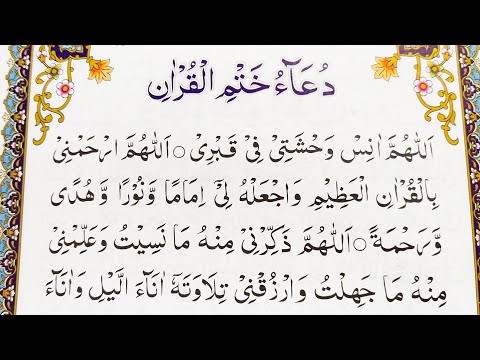 دُعَآءُ خَتْمِ الْقُرْاٰنِ
اَللّٰهُمَّ اٰنِسْ وَحْشَتِیْ فِیْ قَبْرِیْ ○ اَللّٰهُمَّ ارْحَمْنِیْ
بِالْقُرْاٰنِ الْعَظِیْمِ وَاجْعَلْهُ لِیْٓ اِمَامًا وَّنُوْرًا وَّهُدًی
وَّرَحْمَةً ○ اَللّٰهُمَّ ذَكِّرْنِیْ مِنْهُ مَا نَسِیْتُ وَعَلِّمْنِیْ
مِنْهُ مَا جَهِلْتُ وَارْزُقْنِیْ تِلَاوَتَهٗٓ اٰنَآءَ الَّیْلِ وَاٰنَآءَ